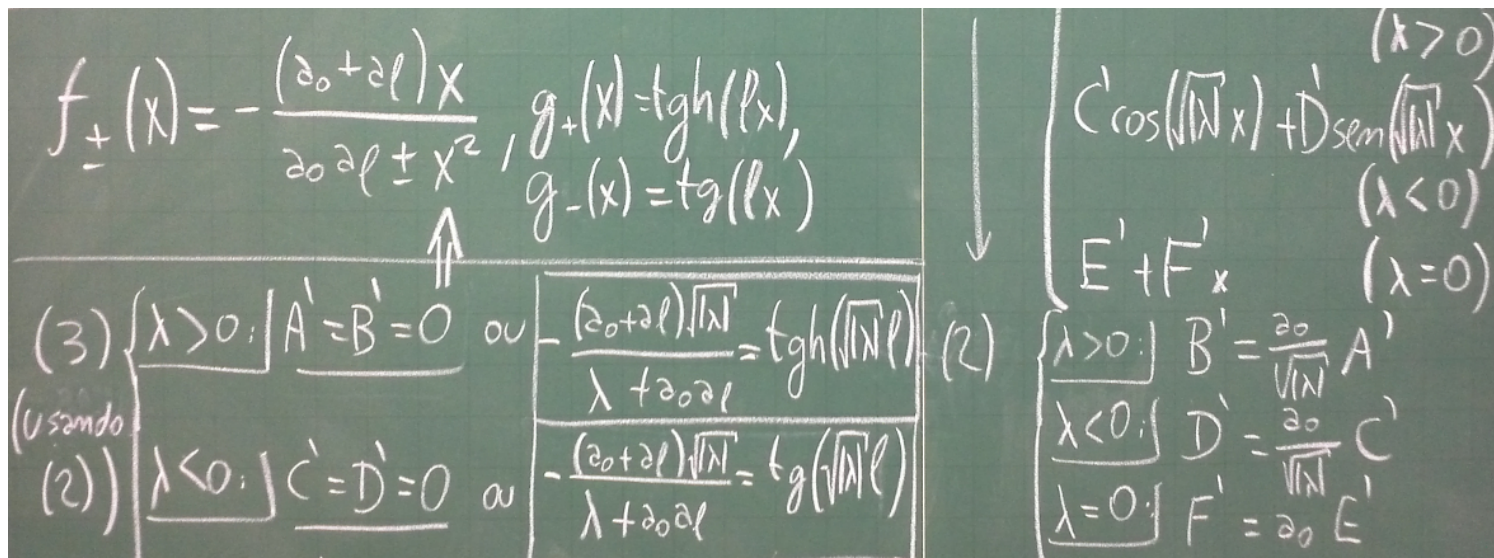 f±(x) = - (a₀+aℓ)x / (a₀aℓ ± x²), g₊(x) = tgh(ℓx),
g₋(x) = tg(ℓx)
(3) λ>0: A' = B' = 0 ou - (a₀+aℓ)√|λ| / (λ + a₀aℓ) = tgh(√|λ| ℓ)
(usando
(2)) λ<0: C' = D' = 0 ou - (a₀+aℓ)√|λ| / (λ + a₀aℓ) = tg(√|λ| ℓ)
(λ>0)
C'cos(√|λ| x) + D'sen(√|λ| x)
(λ<0)
E' + F'x (λ=0)
(2) λ>0: B' = a₀/√|λ| A'
λ<0: D' = a₀/√|λ| C'
λ=0: F' = a₀ E'